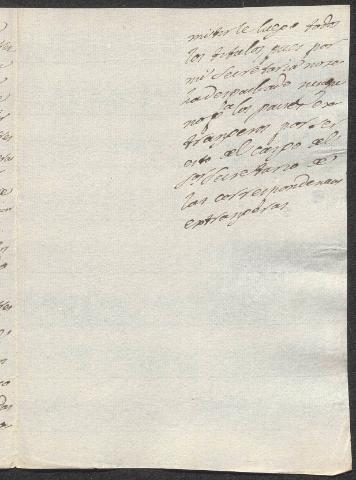 mitirle luego todos
los titulos pues por
mi Secretaria no se
ha despachado ningu
no pª los paises ex
trangeros por ser
esto del cargo del
Sr Secretario de
las correspondencias
extrangeras